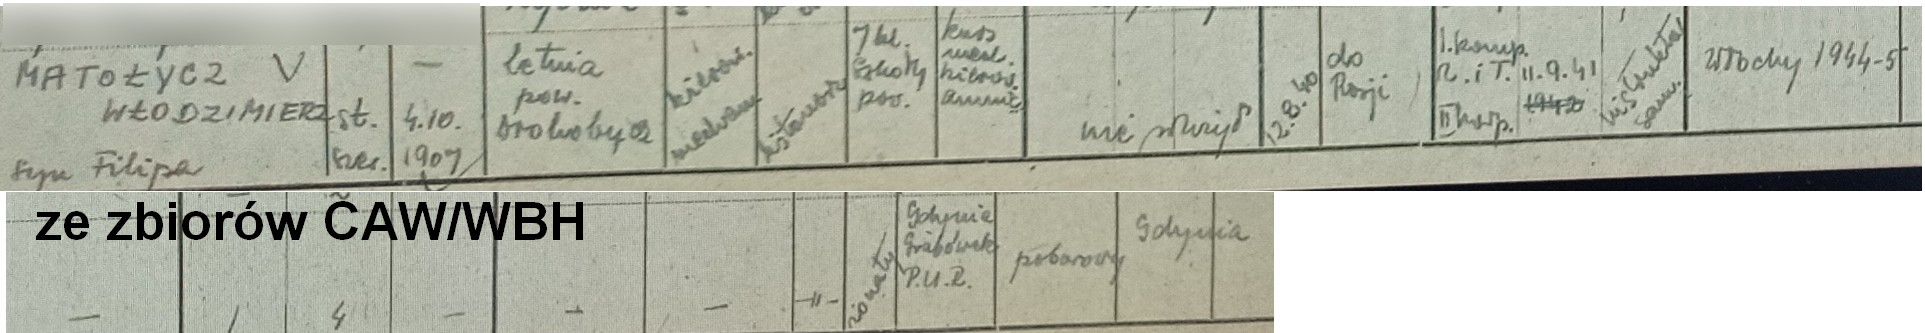 MATOŁYCZ V
WŁODZIMIERZ
syn Filipa
st.
szer.
—
4.10.
1907
Letnia
pow.
Drohobycz
kierow.
mechan.
7 kl.
szkoły
pow.
kurs
mech.
kierow.
nie służył
12.8.40
do
Rosji
1. komp.
R. i T. 11.9.41
II korp. 1942
Włochy 1944-5
ze zbiorów CAW/WBH
— / 4 — — — —〃—
żonaty
Gdynia
Grabówek
P.U.R.
poborowy
Gdynia